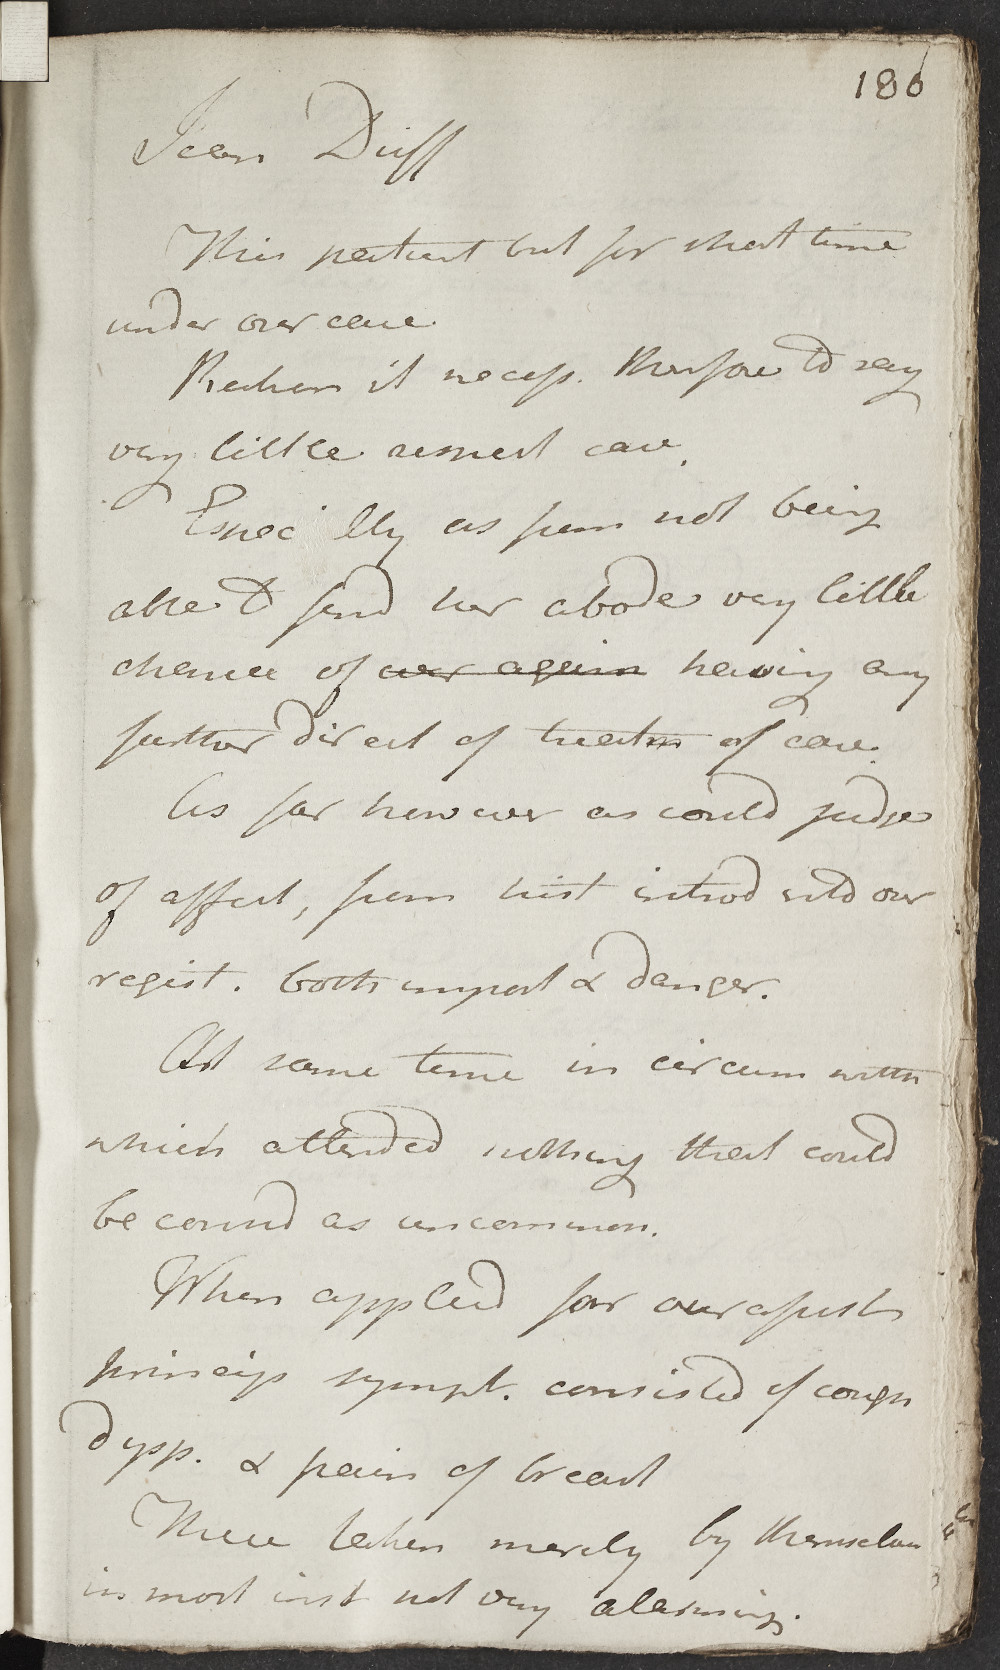 186
Jean Duff
This patient but for short time
under our care.
Reckon it necess. therefore to say
very little respect case.
Espec'lly as from not being
able to find her abode very little
chance of ever again having any
further direct of treatm of case.
As far however as could judge
of affect, from hist introd into our
regist. both import & danger.
At same time in circum with
which attended nothing that could
be considd as uncommon.
When applied for our assist
princip sympt. consisted of cough
dysp. & pain of breast
These taken merely by themselves
in most inst not very alarming.